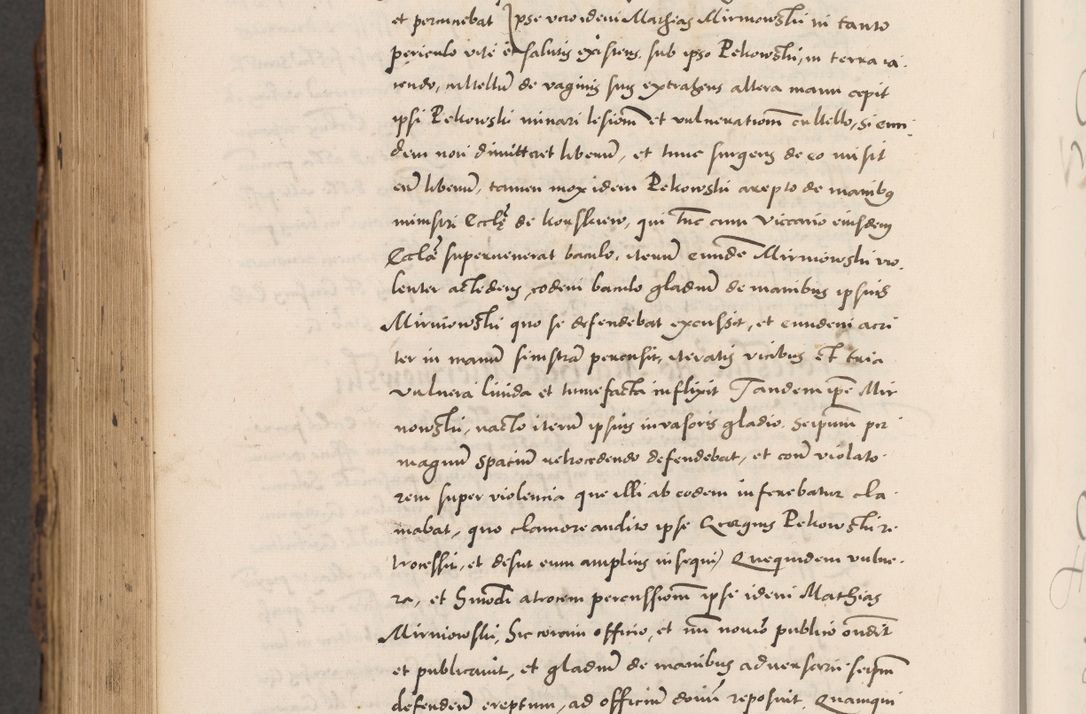 et percutiebat Ipse vero idem Mathias Mirniowski in tanto
periculo vite et salutis existens, sub ipso Pekowski, in terra ia-
cendo, cultellu de vaginis suis extrahens altera manu cepit
ipsi Pekowski minari lesionem et vulnerationem cultello, Si eun-
dem non dimitteret liberum, et tunc surgens de eo misit
eu liberum, tamen mox idem Pekowski arepto de manibus
ministri Eccle de Korsskiew, qui tunc cum Viccario eiusdem
Eccle supervenerat baculo, iterum eunde Mirniowski vio-
lenter accedens, eodem baculo gladium de manibus ipsius
Mirniowski quo se defendebat excussit, et eundem acri
ter in manum sinistra percussit, iteratis vicibus et tria
vulnera livida et tumefacta inflixit Tandem ipse Mir
nowski, nacto iterum ipsius invasoris gladio, Seipsum per
magnum spacium retrocedendo defendebat, et contra violato-
rem super violencia que illi ab eodem inferebatur cla-
mabat, quo clamore audito ipse Pekowski re-
trocessit, et desiit eum amplius insequi) Quequidem vulne-
ra, et Smodi atrocem percussionem ipse idem Mathias
Mirniowski, Sic coram officio, et mei notario publico ondit
et publicavit, et gladium de manibus adversarii seipsum
defendendo ereptum, ad officium domini reposuit, Quamqui